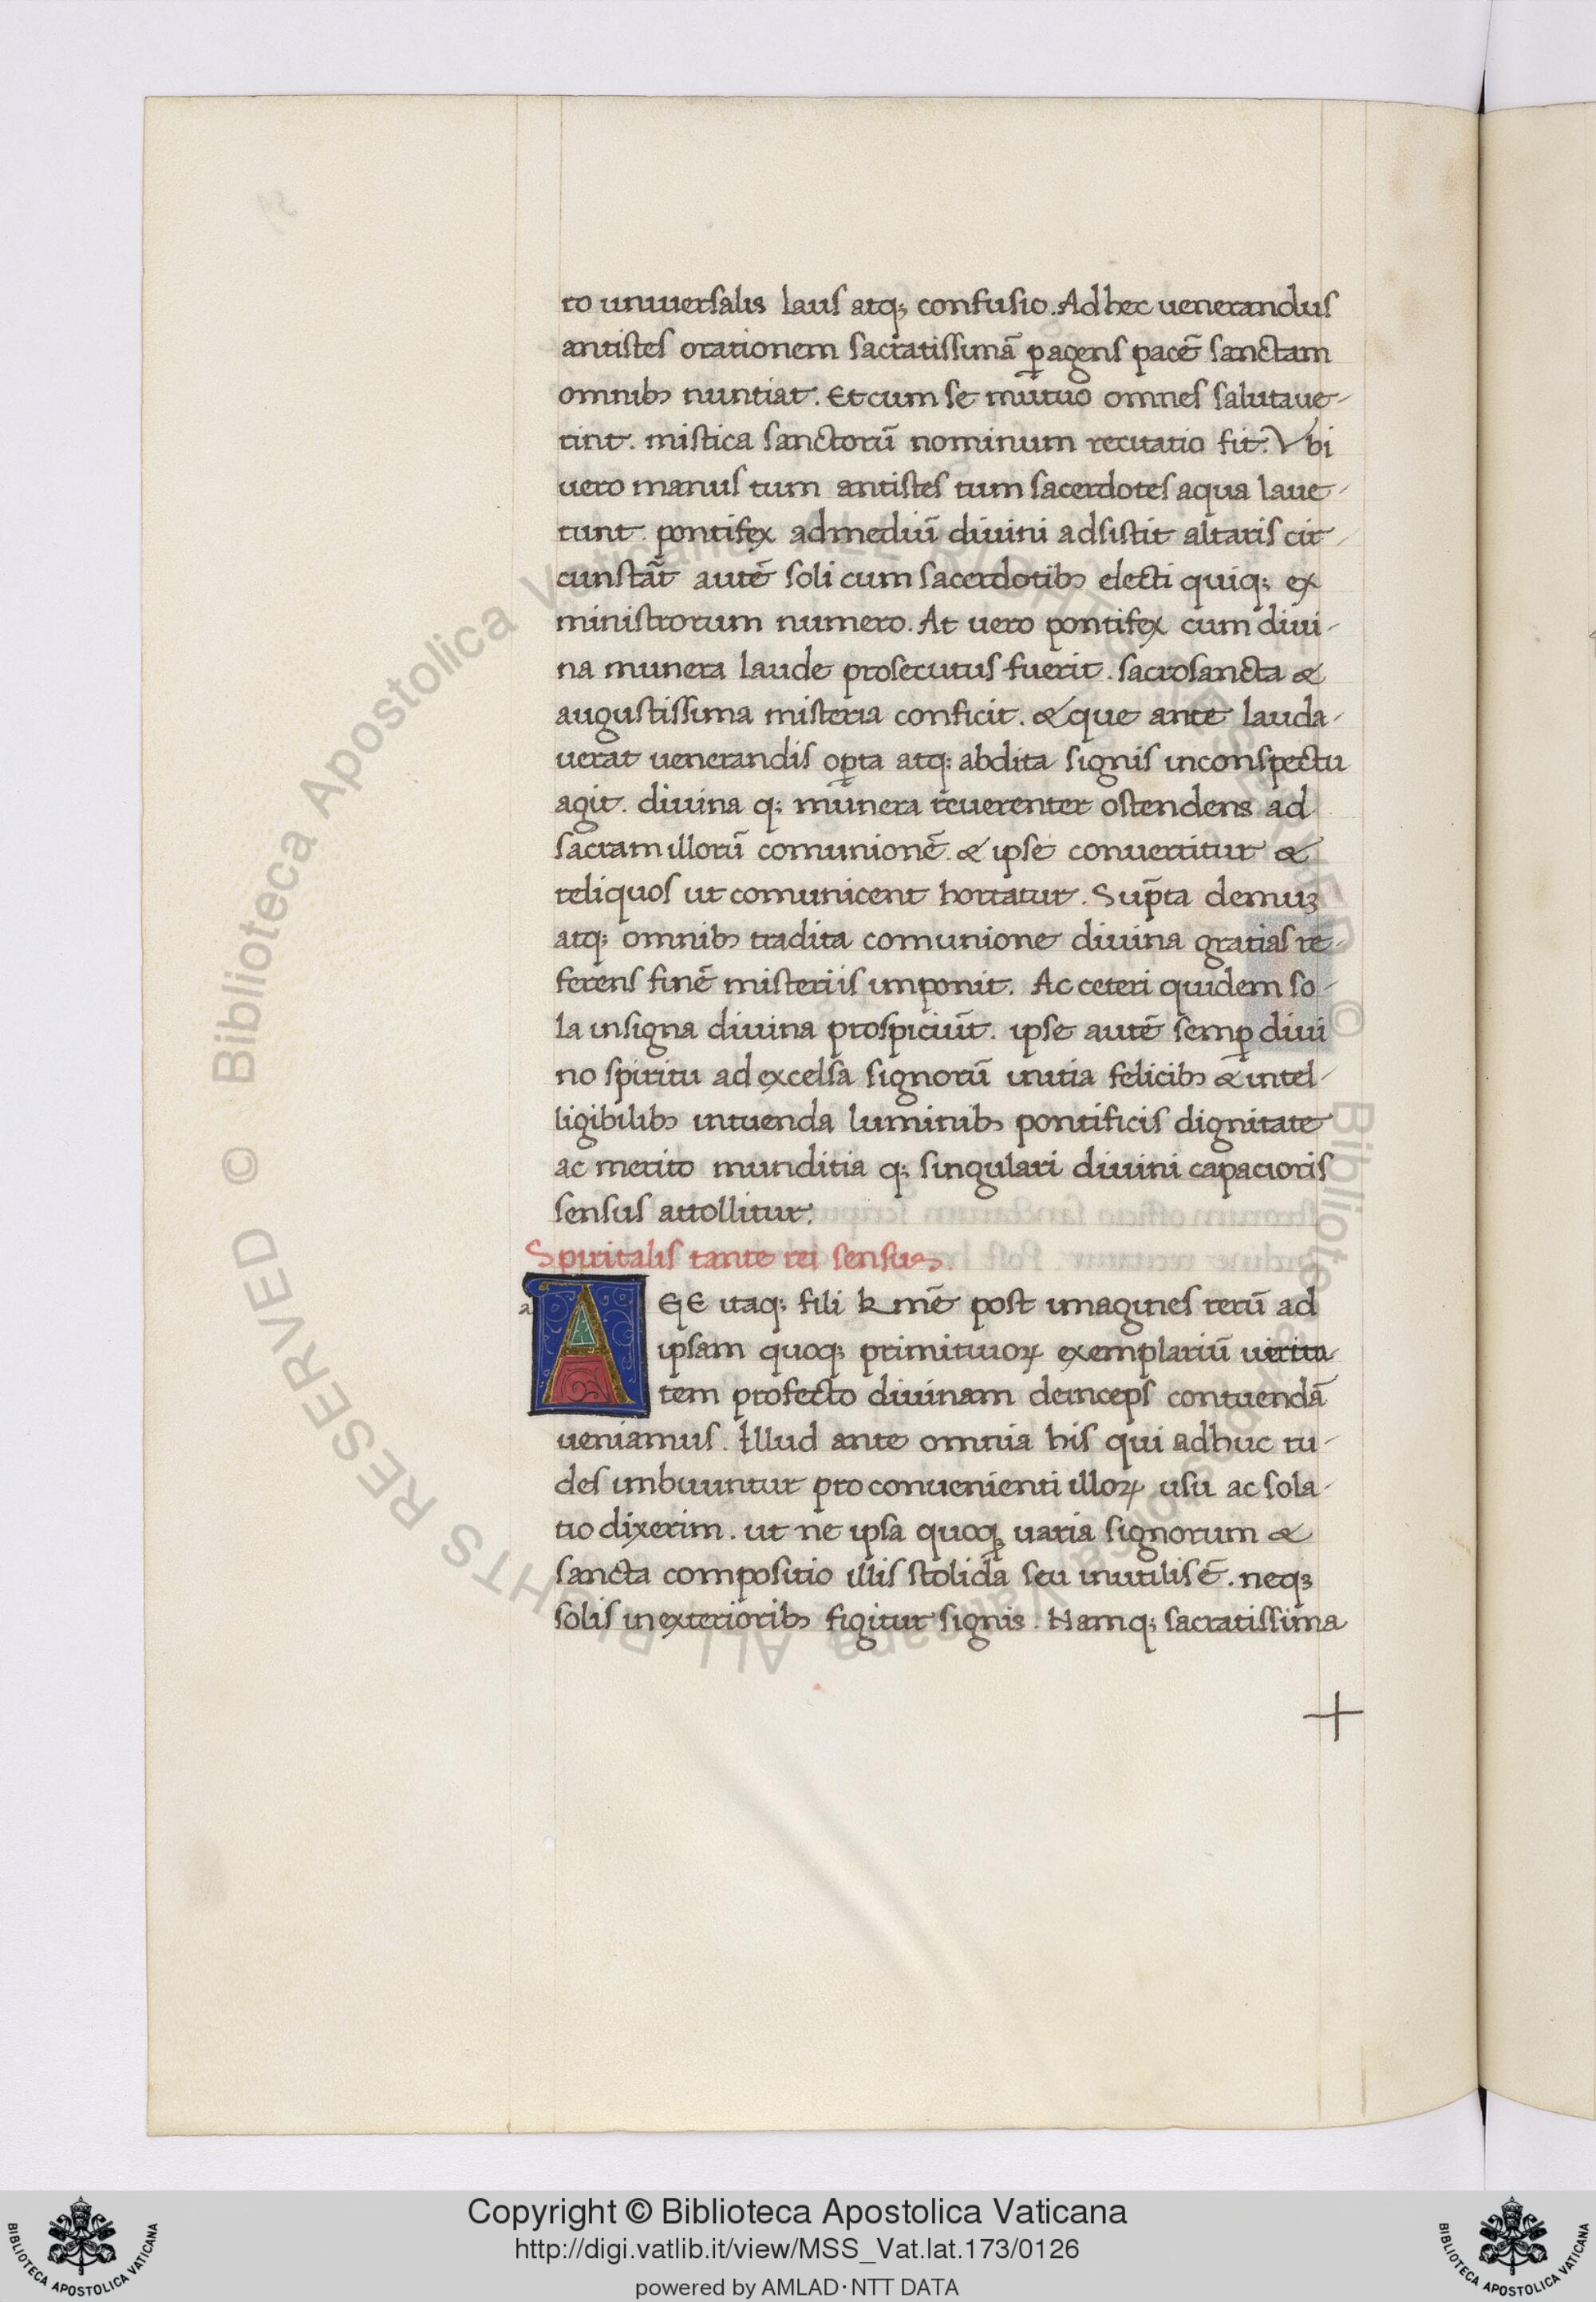 to uniuersalis laus atq; confusio. Ad hec uenerandus
antistes orationem sacratissimā ꝑagens pacē sanctam
omnibꝫ nuntiat. Et cum se mutuo omnes salutaue-
rint. mistica sanctorū nominum recitatio fit. Vbi
uero manus tum antistes tum sacerdotes aqua laue-
runt. pontifex ad mediū diuini adsistit altaris cir-
cunstāt autē soli cum sacerdotibꝫ electi quiq; ex
ministrorum numero. At uero pontifex cum diui-
na munera laude prosecutus fuerit. sacrosancta &
augustissima misteria conficit. & que ante lauda-
uerat uenerandis oꝑta atq; abdita signis inconspectu
agit. diuina q; munera reuerenter ostendens ad
sacram illorū comunionē. & ipse conuertitur &
reliquos ut comunicent hortatur. Sup̄ta demuꝫ
atq; omnibꝫ tradita comunione diuina gratias re-
ferens finē misteriis imponit. Ac ceteri quidem so-
la insigna diuina prospiciūt. ipse autē semꝑ diui
no spiritu ad excelsa signorū initia felicibꝫ & intel-
ligibilibꝫ intuenda luminibꝫ pontificis dignitate
ac merito munditia q; singulari diuini capacioris
sensus attollitur.
Spiritalis tante rei sensus.
a
AGE itaq; fili k mē post imagines rerū ad
ipsam quoq; primitiuoꝝ exemplariū uerita-
tem profecto diuinam deinceps contuendā
ueniamus. Illud ante omnia his qui adhuc ru-
des imbuuntur pro conuenienti illoꝝ usu ac sola-
tio dixerim. ut ne ipsa quoq; uaria signorum &
sancta compositio illis stolida seu inutilis ē. neq;
solis in exterioribꝫ figitur signis. Namq; sacratissima
Copyright © Biblioteca Apostolica Vaticana
http://digi.vatlib.it/view/MSS_Vat.lat.173/0126
powered by AMLAD·NTT DATA
BIBLIOTECA APOSTOLICA VATICANA
BIBLIOTECA APOSTOLICA VATICANA